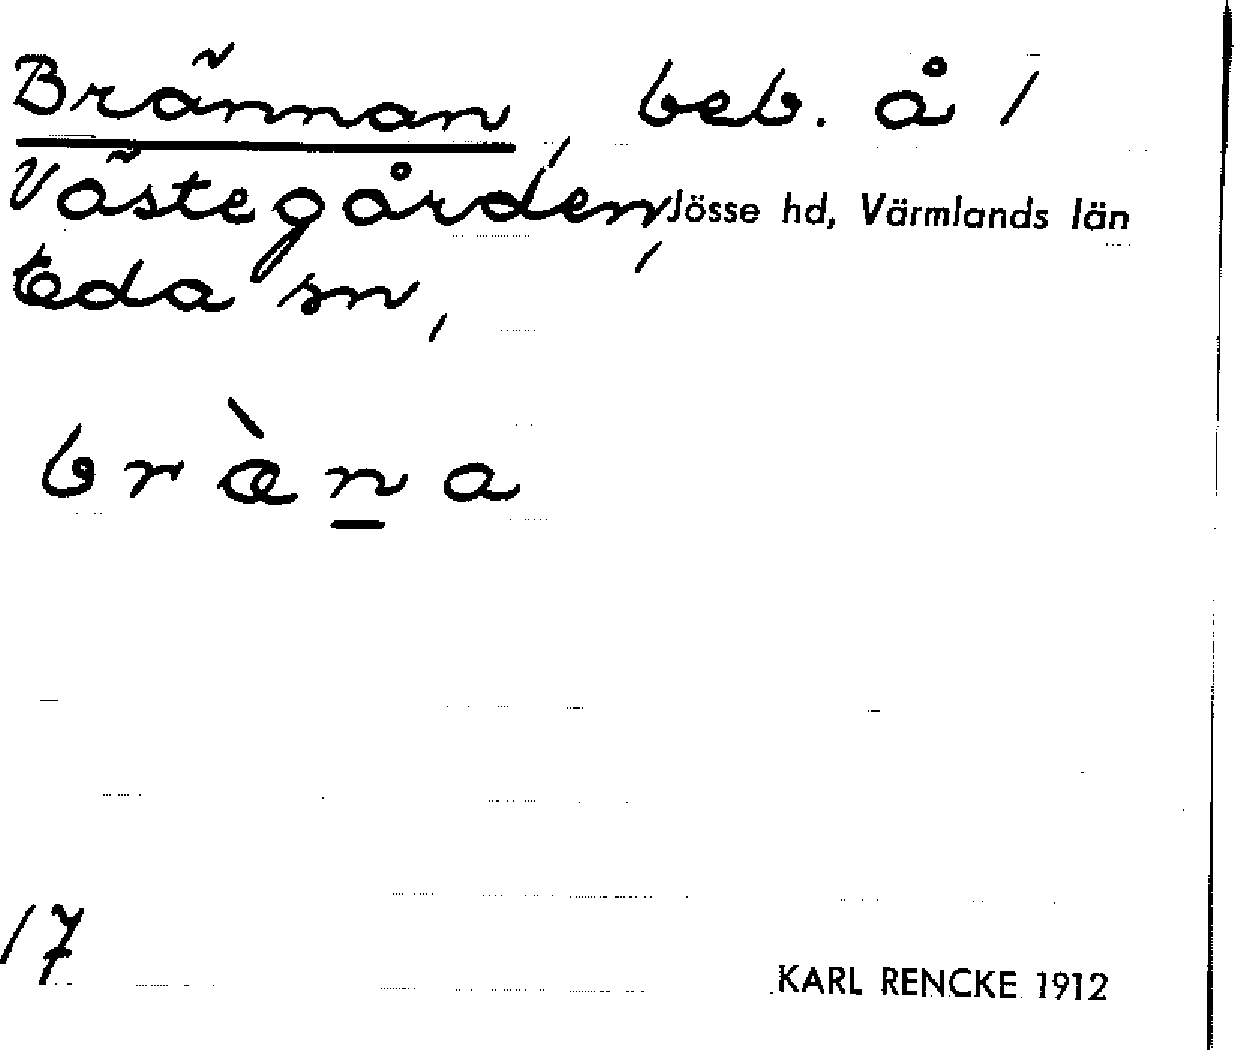 Brännan, beb. å 1
Västegården, Jösse hd, Värmlands län
Eda sn,
bràn̲a
17
KARL RENCKE 1912